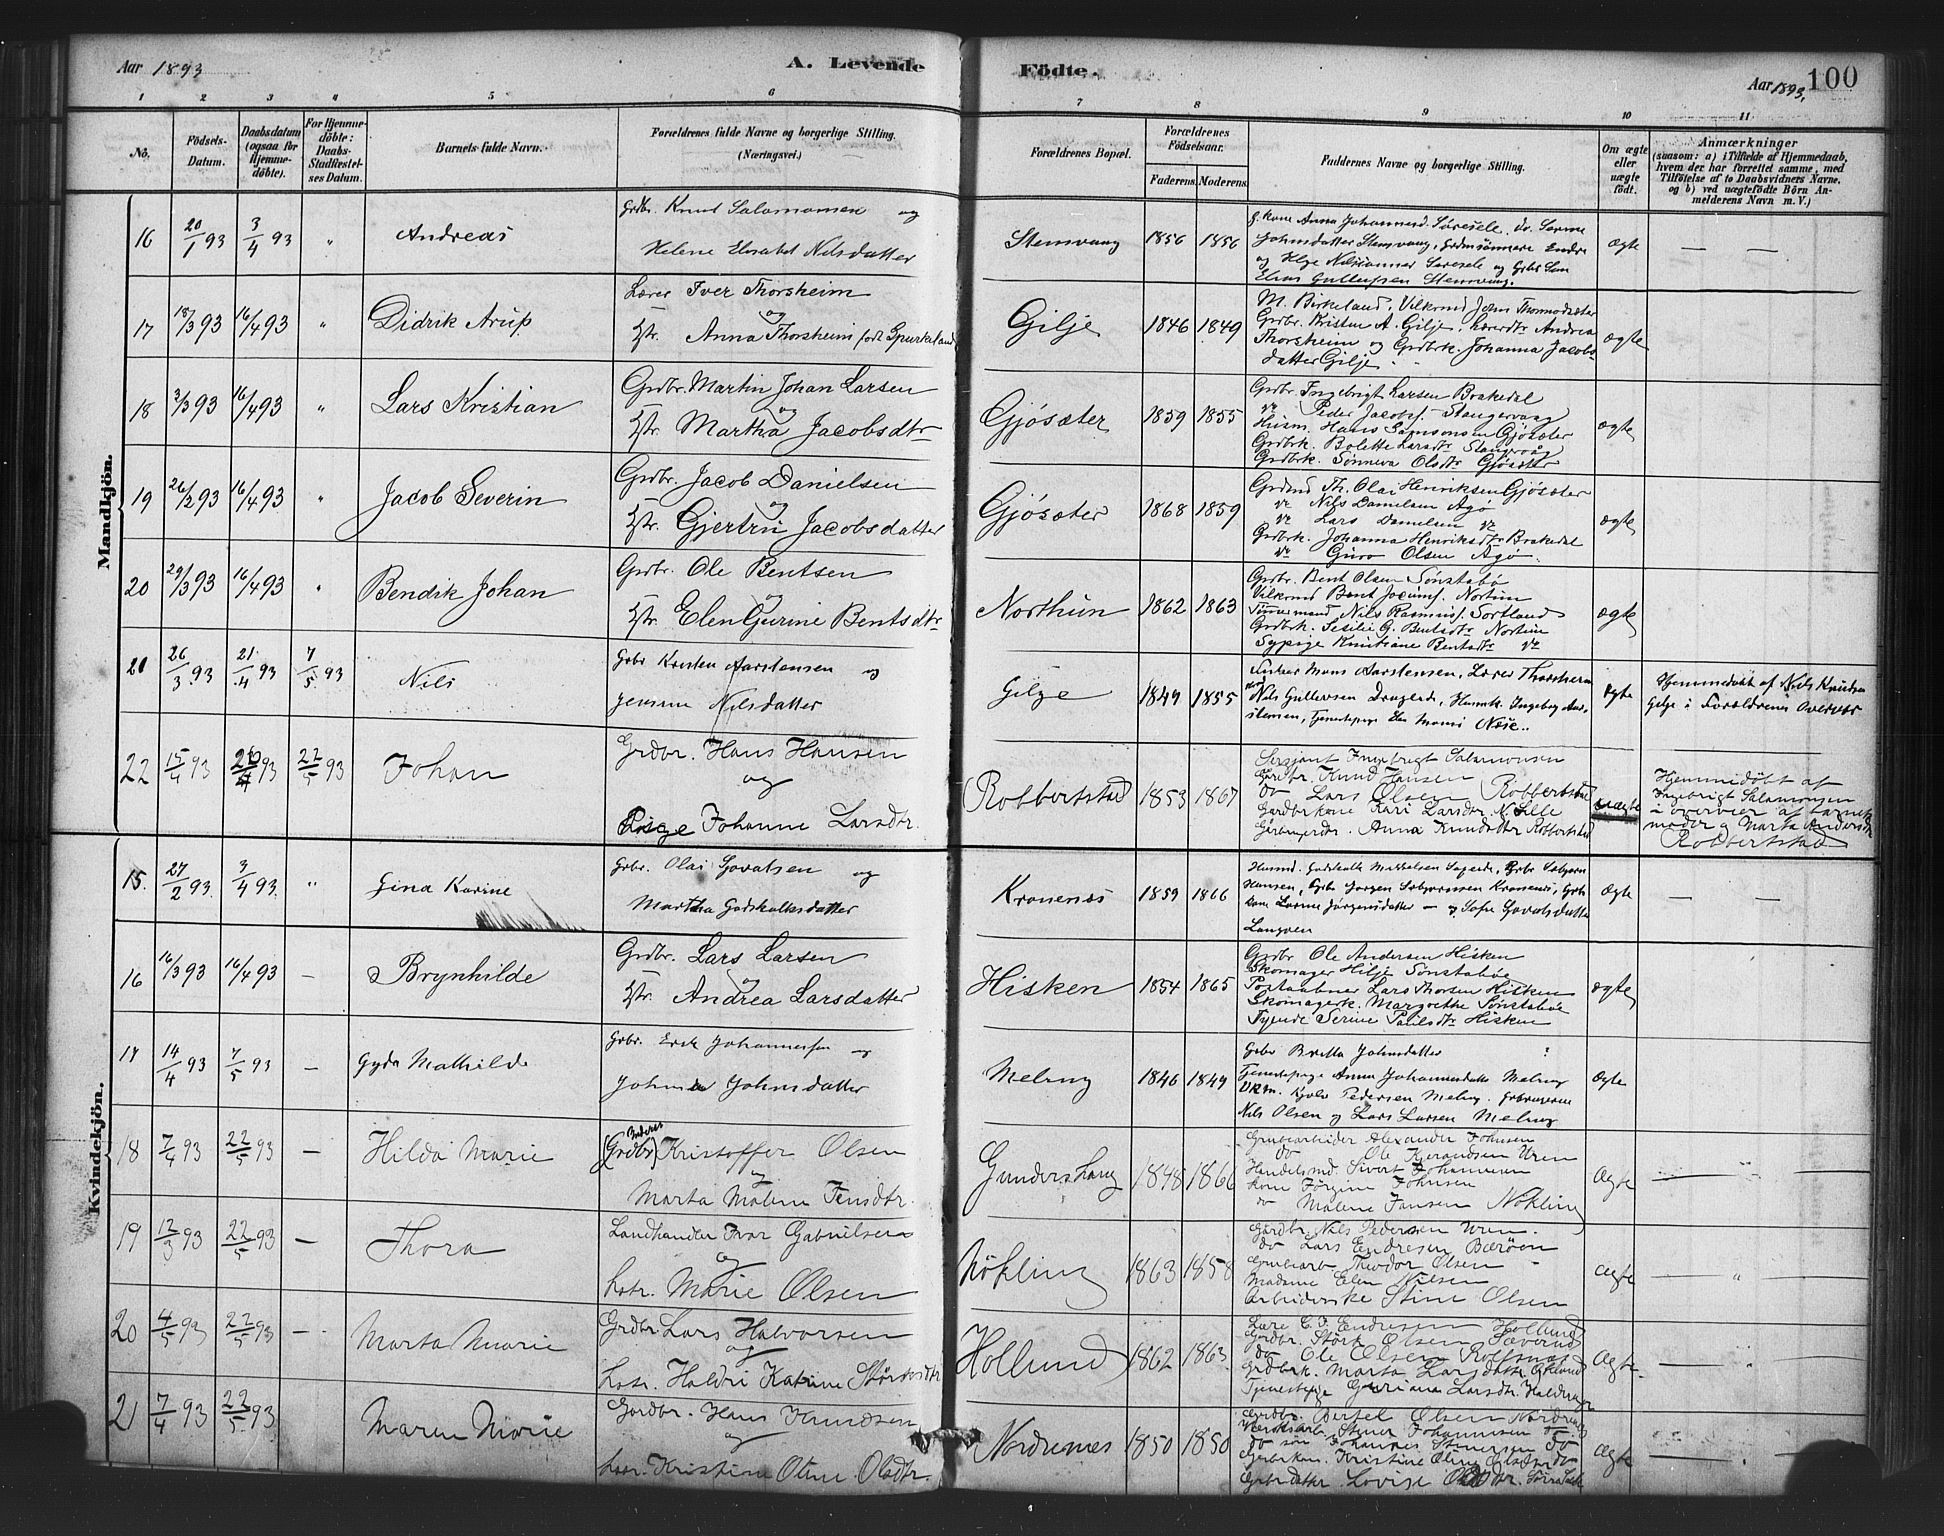 Aar 1893
A. Levende
Födte.
Aar 1893.
100
1 2 3 4 5 6 7 8 9 10 11
No.
Födsels-
Datum.
Daabsdatum
(ogsaa for
Hjemme-
döbte).
For Hjemme-
döbte:
Daabs-
Stadfæstel-
ses Datum.
Barnets fulde Navn.
Forældrenes fulde Navne og borgerlige Stilling.
(Næringsvei.)
Forældrenes Bopæl.
Forældrenes
Födselsaar.
Faderens. Moderens.
Faddernes Navne og borgerlige Stilling.
Om ægte
eller
uægte
födt.
Anmærkninger
(saasom: a) i Tilfælde af Hjemmedaab,
hvem der har forrettet samme, med
Tilföielse af to Daabsvidners Navne,
og b) ved uægtefödte Börn An-
melderens Navn m. V.)
Mandkjön.
16 20/1 93 3/4 93 " Andreas
Grdbr. Knud Salamonsen og
Helene Elisabet Nilsdatter
Stemvang 1856 1856
G. kone Anna Johannesd. Søresele, do. Serine
Johnsdatter Stemvang, Grdmsønnerne Endre
og Helge Nilssønner Søresele og Grbr Søn
Elias Gullaksen Stemvang.
ægte — —
17 18/3 93 16/4 93 " Didrik Arup
Lærer Iver Thorsheim
og
Hstr. Anna Thorsheim født Spurkeland
Gilje 1846 1849
M. Birkeland, Vilkrmd John Thormodsæter
Grdbr. Kristen A. Gilje, Lærerdtr Andrea
Thorsheim og Grdbrk. Johanna Jacobs-
datter Gilje
ægte
18 3/3 93 16/4 93 " Lars Kristian
Grdbr. Martin Johan Larsen
og
Hstr. Martha Jacobsdtr
Gjösæter 1859 1855
Grdbr Ingebrigt Larsen Brakedal
do Peder Jacobs. Stangervaag
Husm. Hans Samsonsen Gjösæter
Grdbrk. Bolette Larsdtr Stangervåg
Grdbrk. Sönneva Olsdtr Gjösæter
ægte
19 26/2 93 16/4 93 " Jacob Severin
Grdbr. Jacob Danielsen
og
Hstr. Gjertrü Jacobsdatter
Gjösæter 1868 1859
Grdmd Th. Olai Henriksen Gjösæter
do Nils Danielsen Agø
do Lars Danielsen do
Grdbrk. Johanna Henriksdtr Brakedal
do Guro Olsen Agø.
ægte
20 29/3 93 16/4 93 " Bendik Johan
Grdbr. Ole Bentsen
og
Hstr. Elen Gurine Bentsdtr
Northün 1862 1863
Grdbr. Bent Olsen Sønstabø
Vilkrmd Bent Jocums. Nortün
Tümmermand Nils Rasmus. Sortland
Grdbrk. Sesilie G. Bentsdtr Nortün
Sypige Kristiane Bentsdtr do
ægte
21 26/3 93 21/4 93 7/5 93 Nils
Grbr Kristen Aarstensen og
Jensine Nilsdatter
Gilje 1849 1855
Mons Aarstensen, Lærer Thorsheim
Nils Gullevsen Dragerd, Ingeborg Aar-
stensen, Tjenestepige Nese.
Ægte
Hjemmedøbt af Nils Knudsen
Gilje i Forældrenes Overvær
22 15/4 93 93 22/5 93 Johan
Grdbr. Hans Hansen
og
Pige Johanne Larsdtr.
Robbertstad 1853 1867
Sersjant Ingebrigt Salamonsen
Gardbr. Knud Hansen
do Lars Olsen Robbertstad
Gardbrkone Kari Larsdtr N. Lille
Gårbrugerdtr. Anna Knudsdtr Robbertstad
uægte
Hjemmedöbt af
Ingebrigt Salamonsen
i overvær af barnets
moder og Marta Andersdtr
Robbertstad
Kvindekjön.
15. 27/2 93. 3/4 93. " Gina Karine
Grbr. Olai Govatsen og
Martha Godskalksdatter
Kronenes 1859 1866
Husmd. Godskalk Mathiesen, Grbr Asbjørn
Hansen, Grbr Jørgen Asbjørnsen Kronenes, Grb
kone Larine Jørgensdatter — og Sofie Govatsdatter
Langøen
Ægte — —
16 16/3 93 16/4 93 — Brynhilde
Grdbr. Lars Larsen
og
Hstr. Andrea Larsdatter
Hisken 1854 1865
Grdbr Ole Andersen Hisken
Skomager Hilje Sønstabøe
Postaabner Lars Thorsen Hisken
Skomagerk. Margrethe Sønstabøe
Tjende Serine Paulsdtr Hisken
ægte
17 14/4 93 7/5 93 — Gyda Mathilde
Grbr. Erik Johannessen og
Johnsdatter
Meling 1846 1849
Grbr Britta Johnsdatter
Tjenestepige Anna Johannesdatter Meling
Pedersen Meling. Grbrugerne
Nils Olsen og Lars Larsen Meling
Ægte
18 7/4 93 22/5 93 — Hilda Marie
(Grdbr) Kristoffer Olsen
og
Marta Malene Jensdtr.
Gundershaug 1848 1866
Grubearbeider Alexander Johnsen
do Ole Kjerandsen Uren
Handelsmd. Sivert Johannesen
Kone Jørgine Johnsen
do Malene Jansen Nökling
Ægte — —
19 12/3 93 22/5 93 — Thora
Landhandler Ivar Gabrielsen
og
hstr. Marie Olsen
Nökling 1863 1858
Gardbr. Nils Pedersen Uren.
do Lars Endresen Bærøen
Grubearb Theodor Olsen
Madame Elen Nilsen
Arbeiderske Stine Olsen
Ægte — "
20 4/5 93 22/5 93 — Marta Marie
Grdbr. Lars Halvorsen
og
hstr. Haldri Katrine Störksdtr
Hollund 1862 1863
Lære C. J. Endresen Hollund
Grdbr. Störk Olsen Sæverud
do Ole Olsen Rolfsnes
Grdbrk. Marta Larsdatter Økland
Tjenestepige Guriane Larsdtr.
Ægte — "
21 7/4 93 22/5 93 Maren Marie
Gardbr. Hans Knudsen
og
hstr. Kristine Oline Olsdtr
Nordrenes 1850 1850
Grdbr. Bertel Olsen
Stener Johannesen do
do søn Johannes Stenersen do
Kristine Oline Olsdtr do
Grbrdatter Lovise
Ægte — —